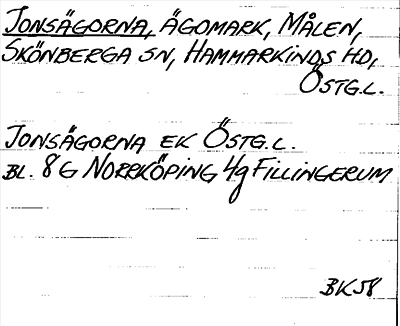 JONSÄGORNA, ÄGOMARK, MÅLEN,
SKÖNBERGA SN, HAMMARKINDS HD,
ÖSTG.L.
JONSÄGORNA EK ÖSTG.L.
BL. 8G NORRKÖPING 4g FILLINGERUM
BK58